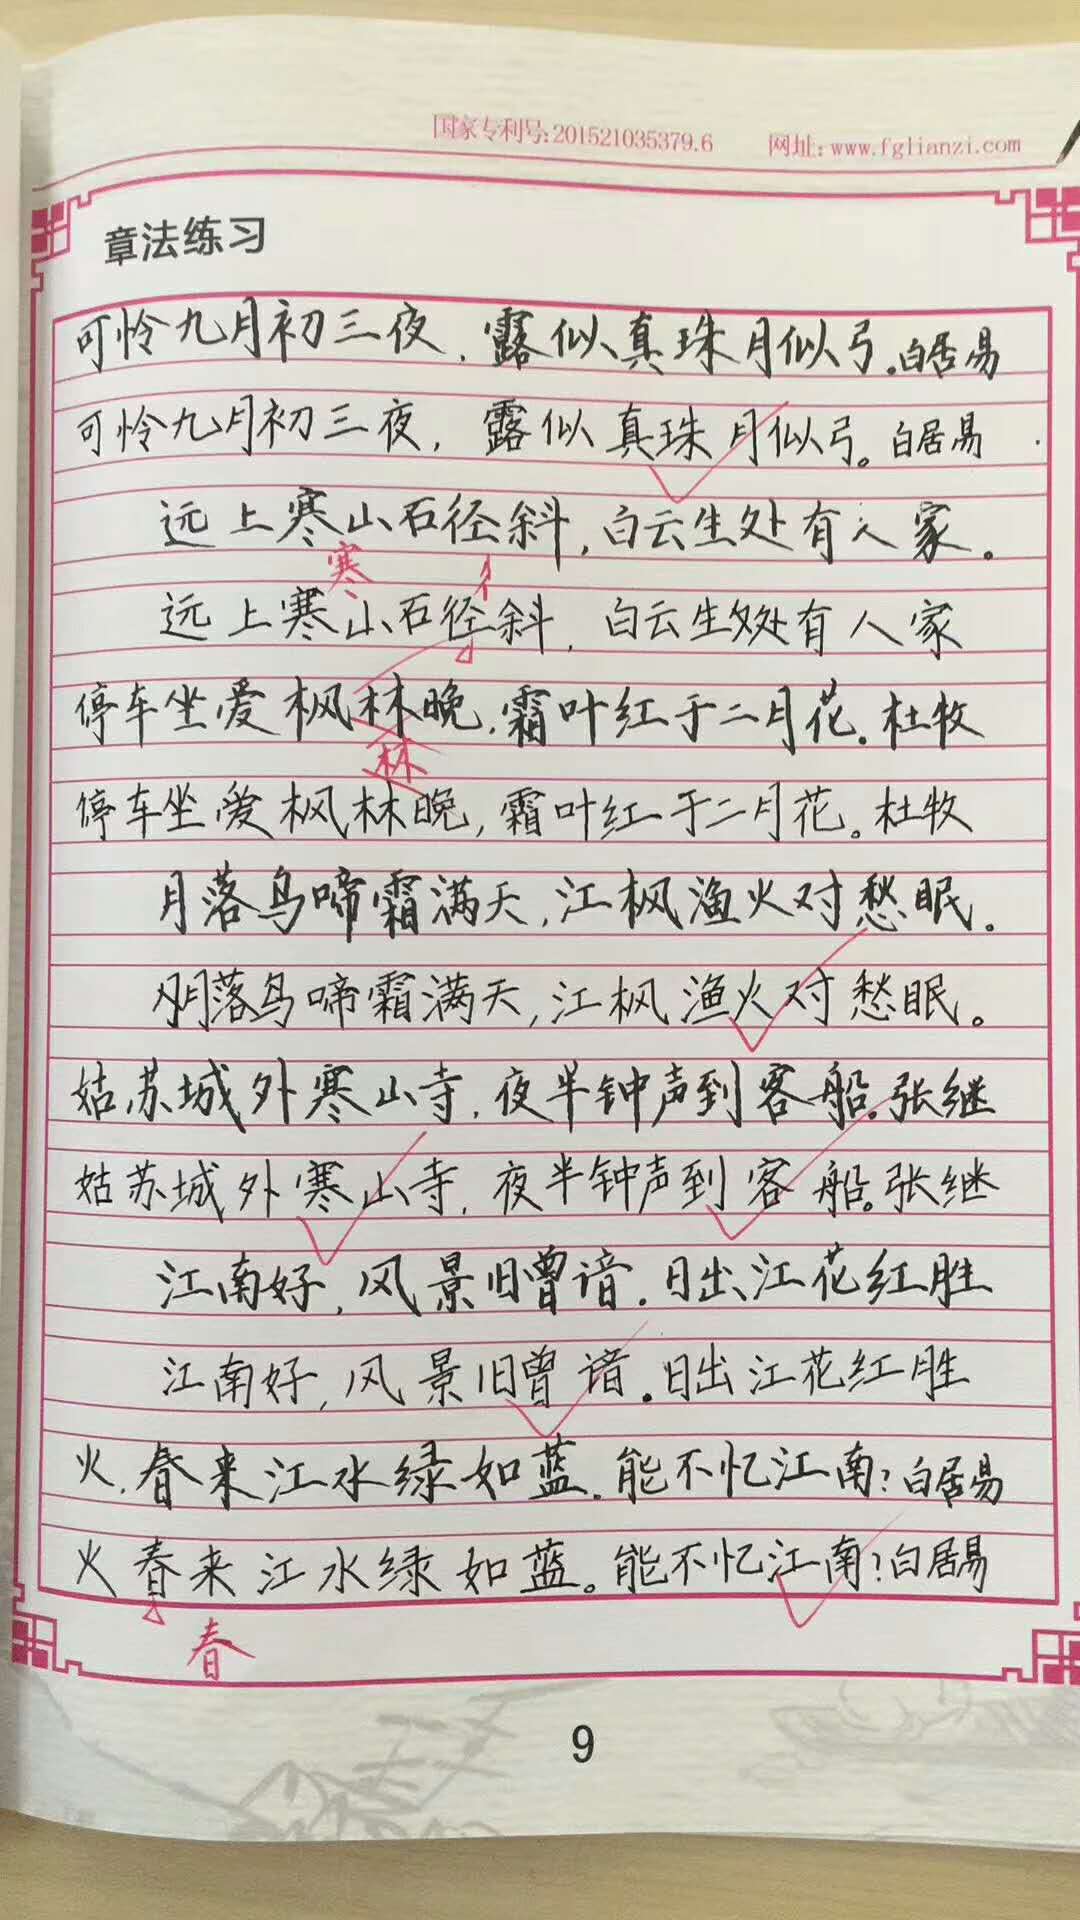 国家专利号:201521035379.6 网址:www.fglianzi.com
章法练习
可怜九月初三夜,露似真珠月似弓。白居易
可怜九月初三夜,露似真珠月似弓。白居易
远上寒山石径斜,白云生处有人家。
寒 彳
远上寒山石径斜,白云生处有人家
停车坐爱枫林晚,霜叶红于二月花。杜牧
林
停车坐爱枫林晚,霜叶红于二月花。杜牧
月落乌啼霜满天,江枫渔火对愁眠。
月落乌啼霜满天,江枫渔火对愁眠。
姑苏城外寒山寺,夜半钟声到客船。张继
姑苏城外寒山寺,夜半钟声到客船。张继
江南好,风景旧曾谙。日出江花红胜
江南好,风景旧曾谙。日出江花红胜
火,春来江水绿如蓝。能不忆江南?白居易
火春来江水绿如蓝。能不忆江南?白居易
春
9